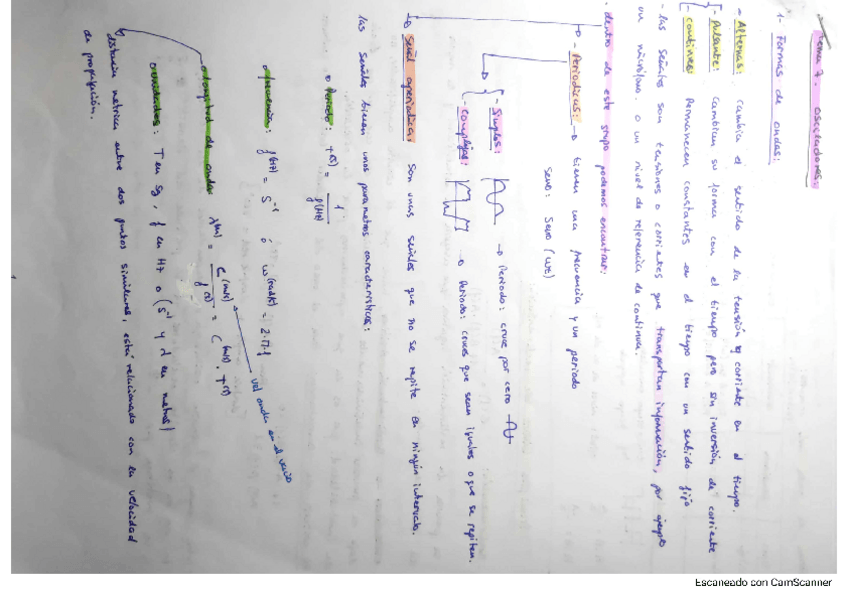 Tema 7. osciladores.
1- Formas de ondas:
- Alternas: cambia el sentido de la tensión y corriente en el tiempo.
- Pulsante: cambian su forma con el tiempo pero sin inversión de corriente
- continua: Permanecen constantes en el tiempo con un sentido fijo
- las señales son tensiones o corrientes que transportan información, por ejemplo
un micrófono. o un nivel de referencia de continua.
· dentro de este grupo podemos encontrar:
- Periódicas: → tienen una frecuencia y un periodo
seno: Seno (wt)
- Simples: → Periodo: cruce por cero
- complejas: → Periodo: cruces que sean iguales o que se repiten.
- señal aperiódica: son unas señales que no se repite en ningún intervalo.
las señales tienen unos parametros característicos:
o Periodo: T(s) = 1 / f(Hz)
o frecuencia: f(Hz) = s⁻¹ ó ω(rad/s) = 2·π·f
vel onda en el vacio
o longitud de onda: λ(m) = c(m/s) / f(s) = c(m/s) · T(s)
o unidades: T en sg, f en Hz o (s⁻¹ y λ en metros)
distancia metrica entre dos puntos similares, está relacionado con la velocidad
de propagación.
Escaneado con CamScanner